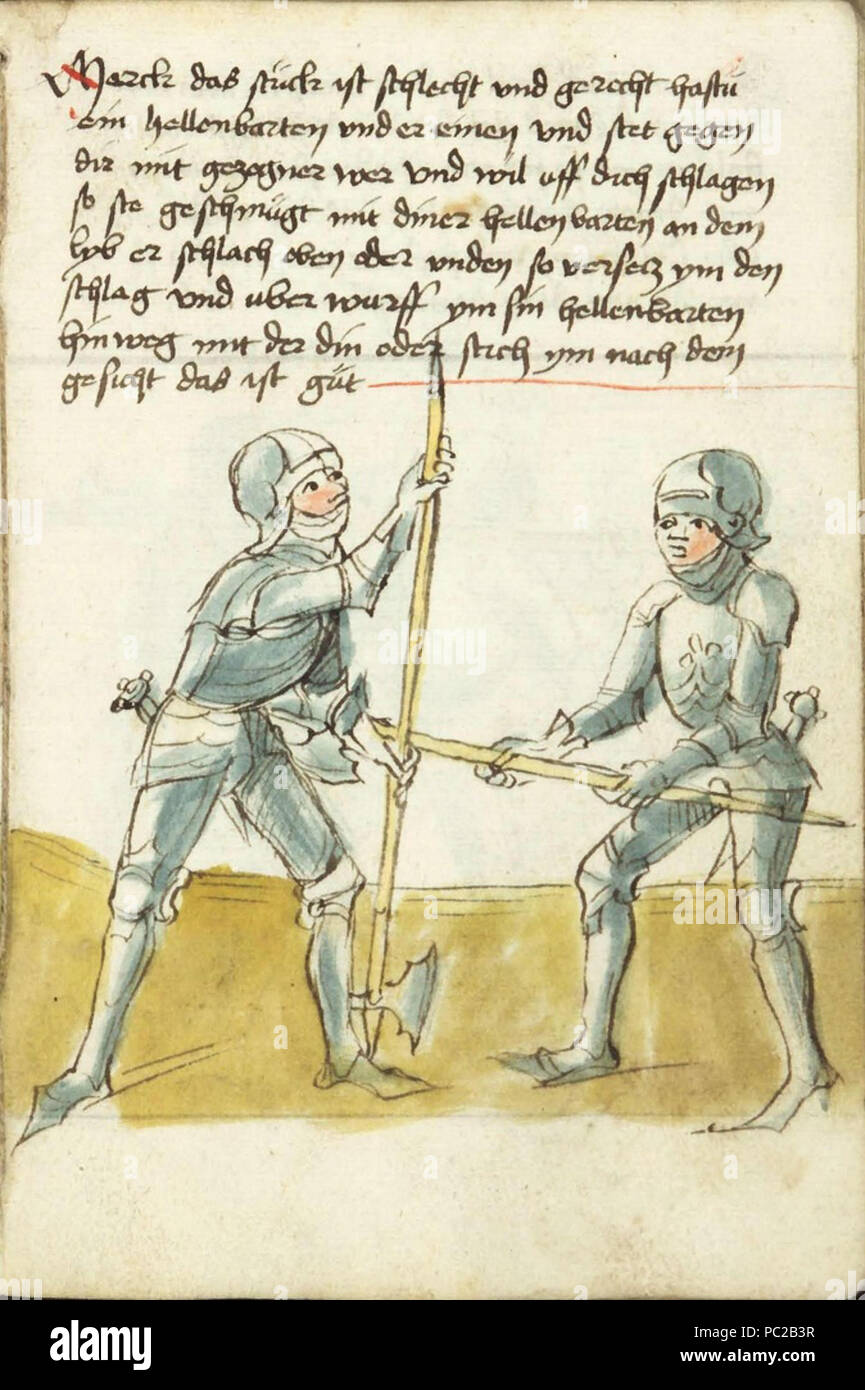 Merck das stuck ist schlecht vnd gerecht hastu
ein hellenbarten vnd er einen vnd stet gegen
dir mit gezogner wer vnd wil uff dich schlagen
so ste geschmugt mit diner hellenbarten an dem
lyb er schlach oben oder vnden so versetz ym den
schlag vnd uber wurff ym sin hellenbarten
hinweg mit der din oder stich ym nach dem
gesicht das ist gut
alamy
alamy
Image ID: PC2B3R
www.alamy.com